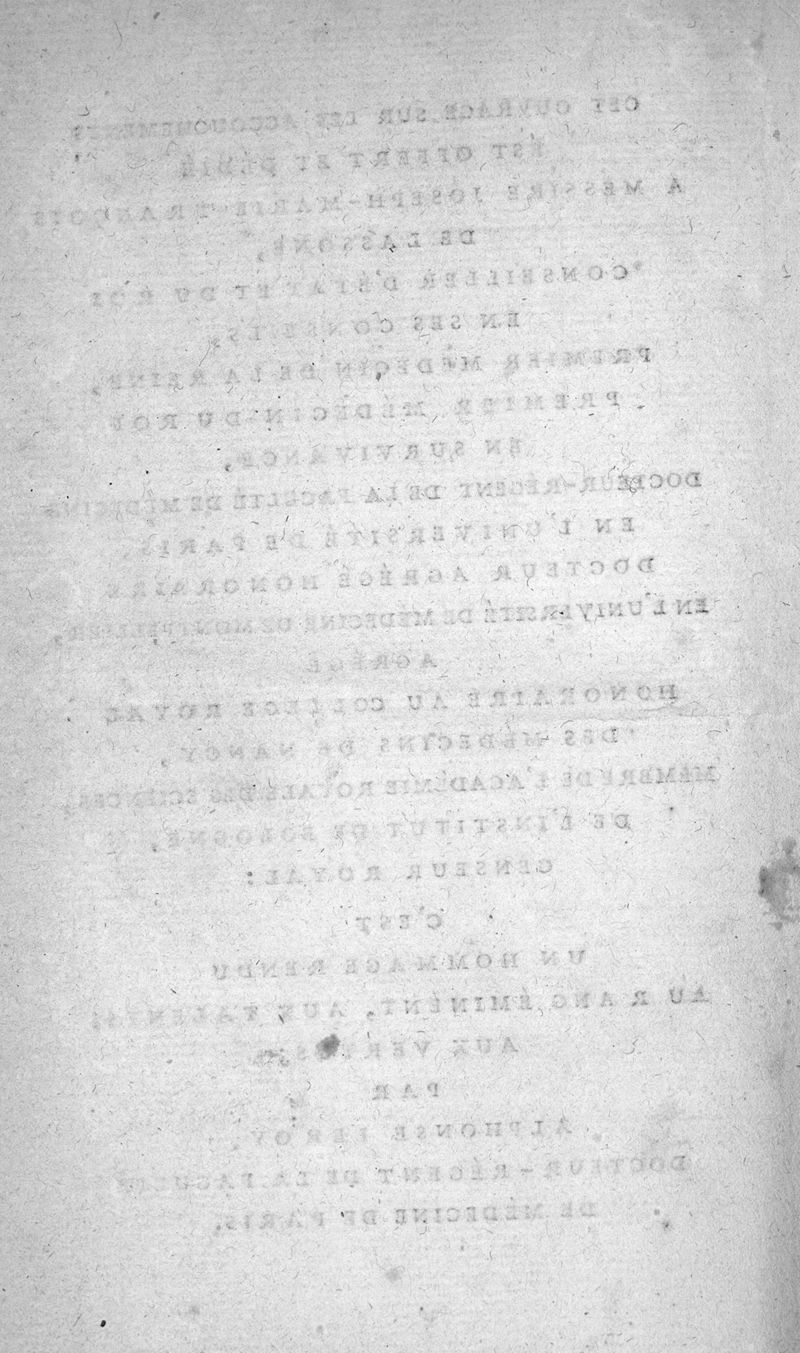 CET OUVRAGE SUR LES ACCOUCHEMENTS
EST OFFERT ET DÉDIÉ
A MESSIRE JOSEPH-MARIE-FRANÇOIS
DE LASSONE,
CONSEILLER D'ÉTAT ET DU ROI
EN SES CONSEILS,
PREMIER MÉDECIN DE LA REINE,
PREMIER MÉDECIN DU ROI
EN SURVIVANCE,
DOCTEUR-RÉGENT DE LA FACULTÉ DE MÉDECINE
EN L'UNIVERSITÉ DE PARIS,
DOCTEUR AGRÉGÉ HONORAIRE
EN L'UNIVERSITÉ DE MÉDECINE DE MONTPELLIER,
AGRÉGÉ
HONORAIRE AU COLLEGE ROYAL
DES MÉDECINS DE NANCY,
MEMBRE DE L'ACADÉMIE ROYALE DES SCIENCES,
DE L'INSTITUT DE BOLOGNE,
CENSEUR ROYAL:
C'EST
UN HOMMAGE RENDU
AU RANG ÉMINENT, AUX TALENTS,
AUX VERTUS;
PAR
ALPHONSE LEROY,
DOCTEUR-RÉGENT DE LA FACULTÉ
DE MÉDECINE DE PARIS.